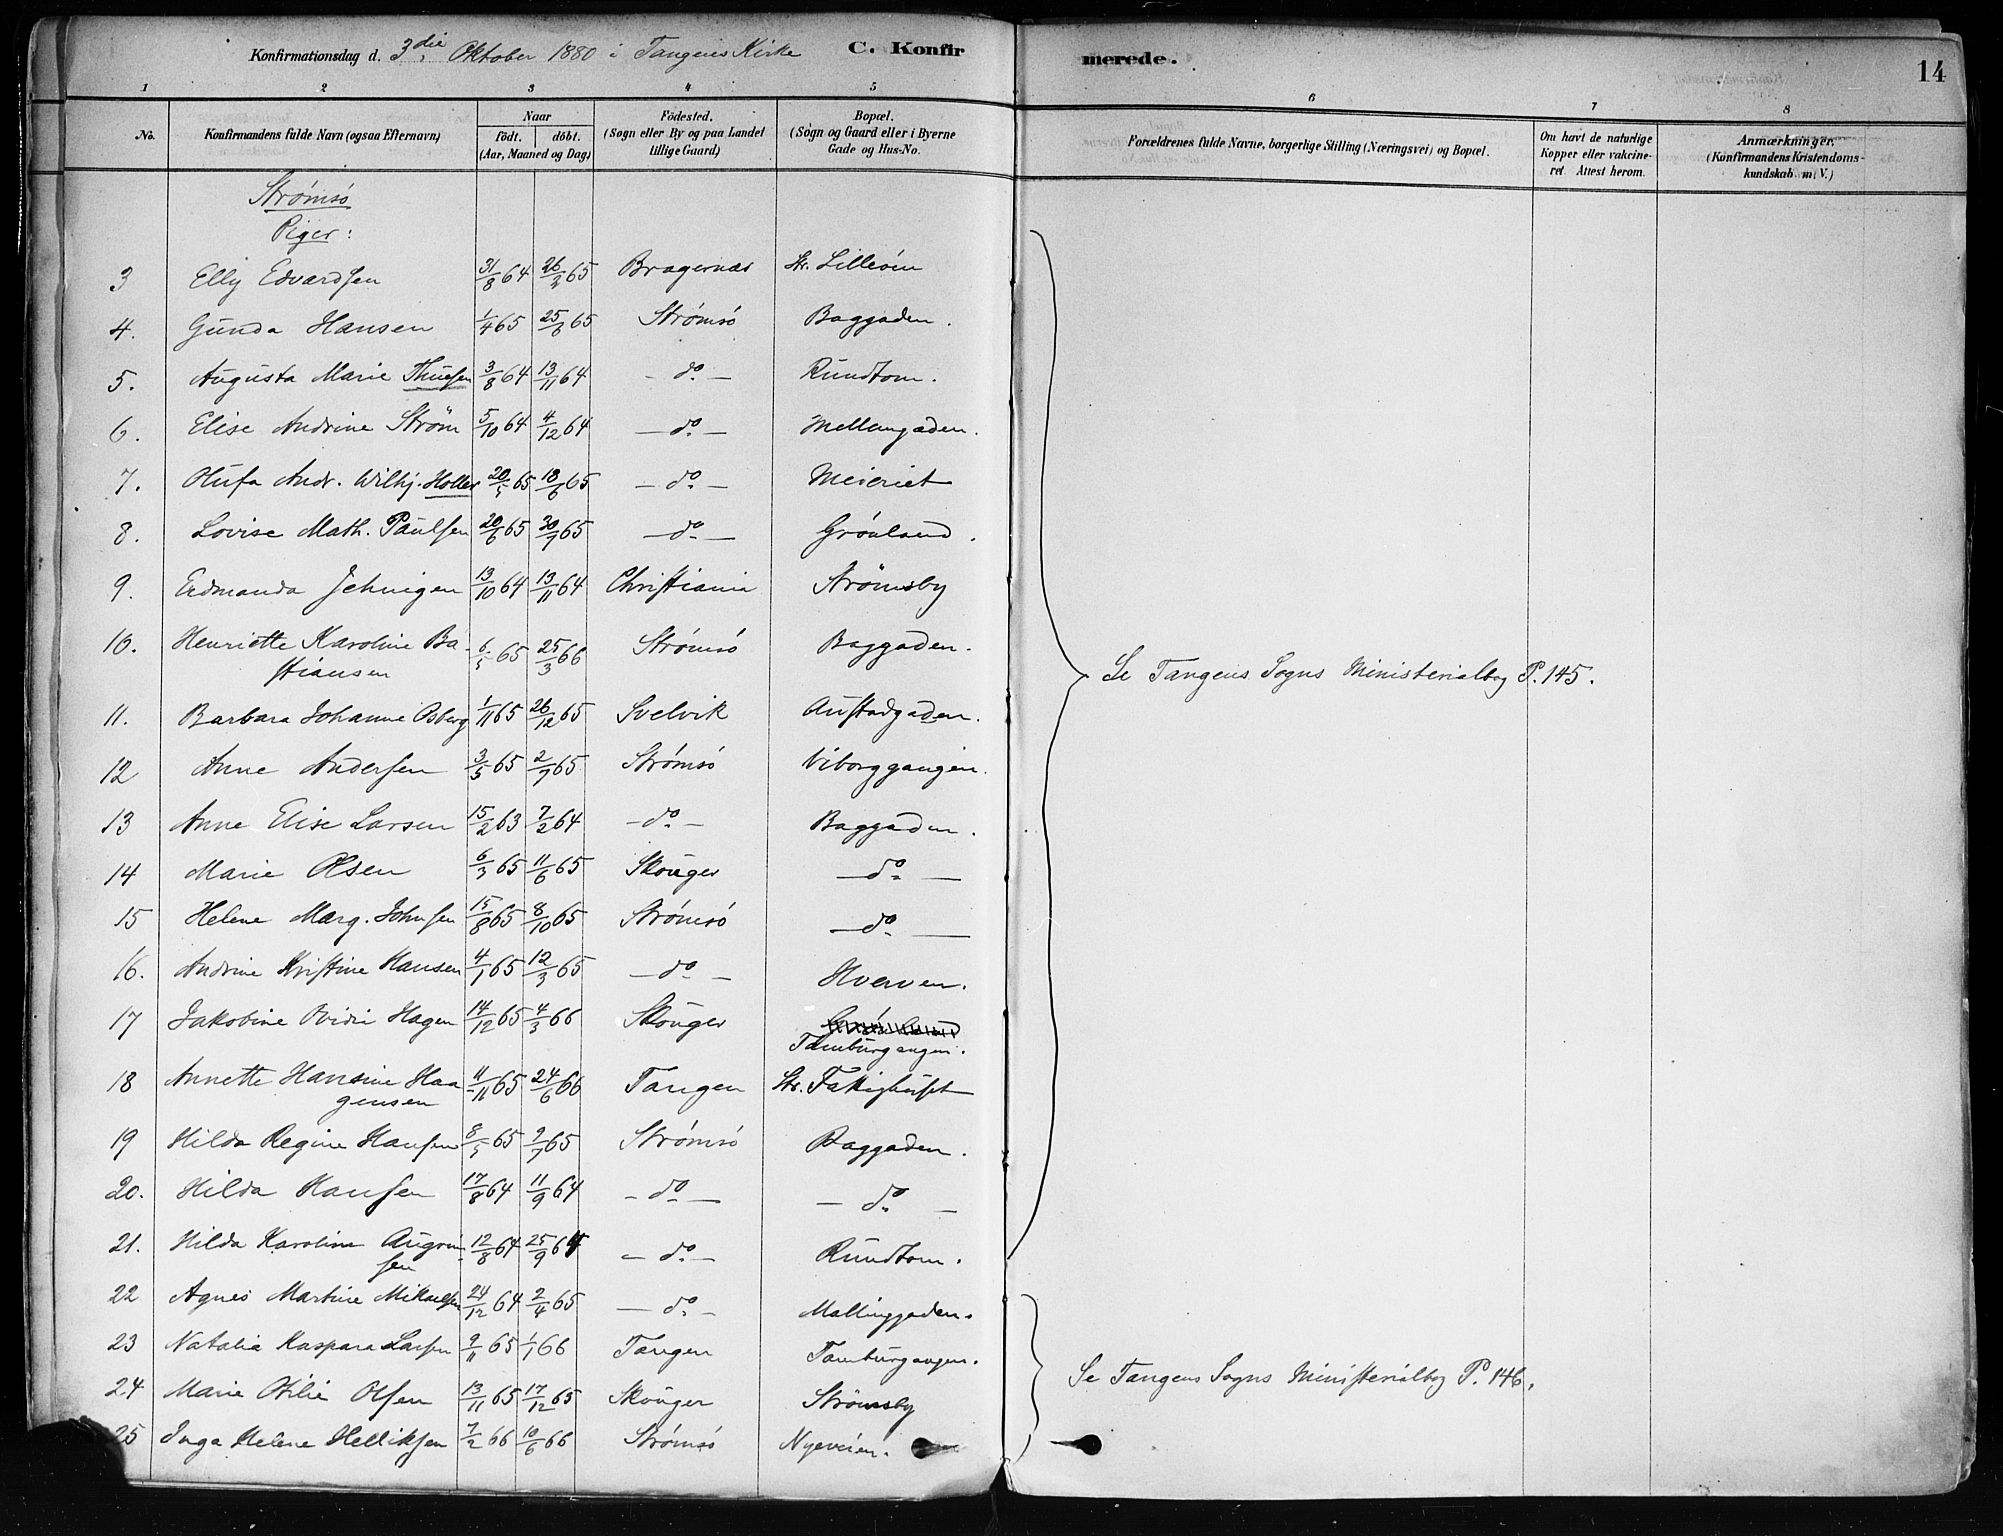 Konfirmationsdag d. 3die Oktober 1880 i Tangens Kirke C. Konfirmerede. 14
1 2 3 4 5 6 7 8
No. Konfirmandens fulde Navn (ogsaa Efternavn) Naar födt. döbt. (Aar, Maaned og Dag) Födested. (Sogn eller By og paa Landet tillige Gaard) Bopæl. (Sogn og Gaard eller i Byerne Gade og Hus-No. Forældrenes fulde Navne, borgerlige Stilling (Næringsvei) og Bopæl. Om havt de naturlige Kopper eller vakcineret. Attest herom. Anmærkninger. (Konfirmandens Kristendomskundskab m. V.)
Strømsö
Piger:
3 Elly Edvardsen 31/8 64 26/2 65 Bragernæs Str. Lilleöen
4. Gunda Hansen 1/4 65 25/6 65 Strömsö Baggaden.
5. Augusta Marie Thuesen 3/8 64 13/11 64 — do — Rundtom.
6. Elise Andrine Ström 5/10 64 4/12 64 — do — Mellemgaden.
7. Olufa Andr. Wilhj. Holler 20/5 65 18/6 65 — do — Meieriet
8. Lovise Math. Paulsen 20/6 65 30/7 65 — do — Grönland.
9. Erdmanda Jehnigen 13/10 64 13/11 64 Christiania Strömsby
10. Henriette Karoline Ba-
stiansen 6/5 65 25/3 66 Strömsö Baggaden.
Se Tangens Sogns Ministerialbog P. 145.
11. Barbara Johanne Osberg 1/11 65 26/12 65 Svelvik Austadgaden.
12 Anne Andersen 3/5 65 2/7 65 Strömsö Viborggangen.
13 Anne Elise Larsen 15/2 63 7/2 64 — do — Baggaden.
14 Marie Olsen 6/3 65 11/6 65 Skouger — do —
15 Helene Marg. Johnsen 15/8 65 8/10 65 Strömsö — do —
16. Andrine Kristine Hansen 4/1 65 12/3 65 — do — Hverven.
17 Jakobine Ovidie Hagen 14/12 65 4/3 66 Skouger
Tamburgangen.
18 Annette Hansine Haa
gensen 11/11 65 24/6 66 Tangen Str. Fattighuset
19 Hilda Regine Hansen 8/5 65 2/7 65 Strömsö Baggaden.
20. Hilda Hansen 17/8 64 11/9 64 — do — — do —
21. Hilda Karoline
sen 12/8 64 25/9 64 — do — Rundtom.
22 Agnes Martine Mikaelsen 24/12 64 2/4 65 — do — Mallinggaden.
23 Natalia Kaspara Larsen 9/11 65 1/1 66 Tangen Tamburgangen.
24 Marie Otilie Olsen 13/11 65 17/12 65 Skouger Strömsby
Se Tangens Sogns Ministerialbog P. 146.
25 Inga Helene Helliksen 7/2 66 10/6 66 Strömsö Nyeveien.